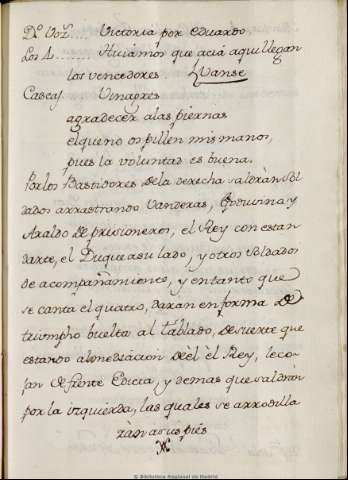 Dº Voz..... Victoria por eduardo.
Los 4........ Huiamos que acia aqui llegan
los vencedores. Vanse
Cascaj Vinagres
agradecer a las piernas
el que no os pillen mis manos,
pues la voluntad es buena.
Por los Bastidores de la derecha saldràn Sol
dados arrastrando Vanderas, Godwina y
Axaldo de prisioneros, el Rey con estan
darte, el Duque a su lado, y otros soldados
de acompañamiento, y entanto que
se canta el quatro, daran en forma de
triumpho buelta al tablado, de suerte que
estando a la mediacion del el Rey, le co
jan de frente Edicta, y demas que saldràn
por la izquierda, las quales se arrodilla
ràn a sus pies
© Biblioteca Nacional de Madrid